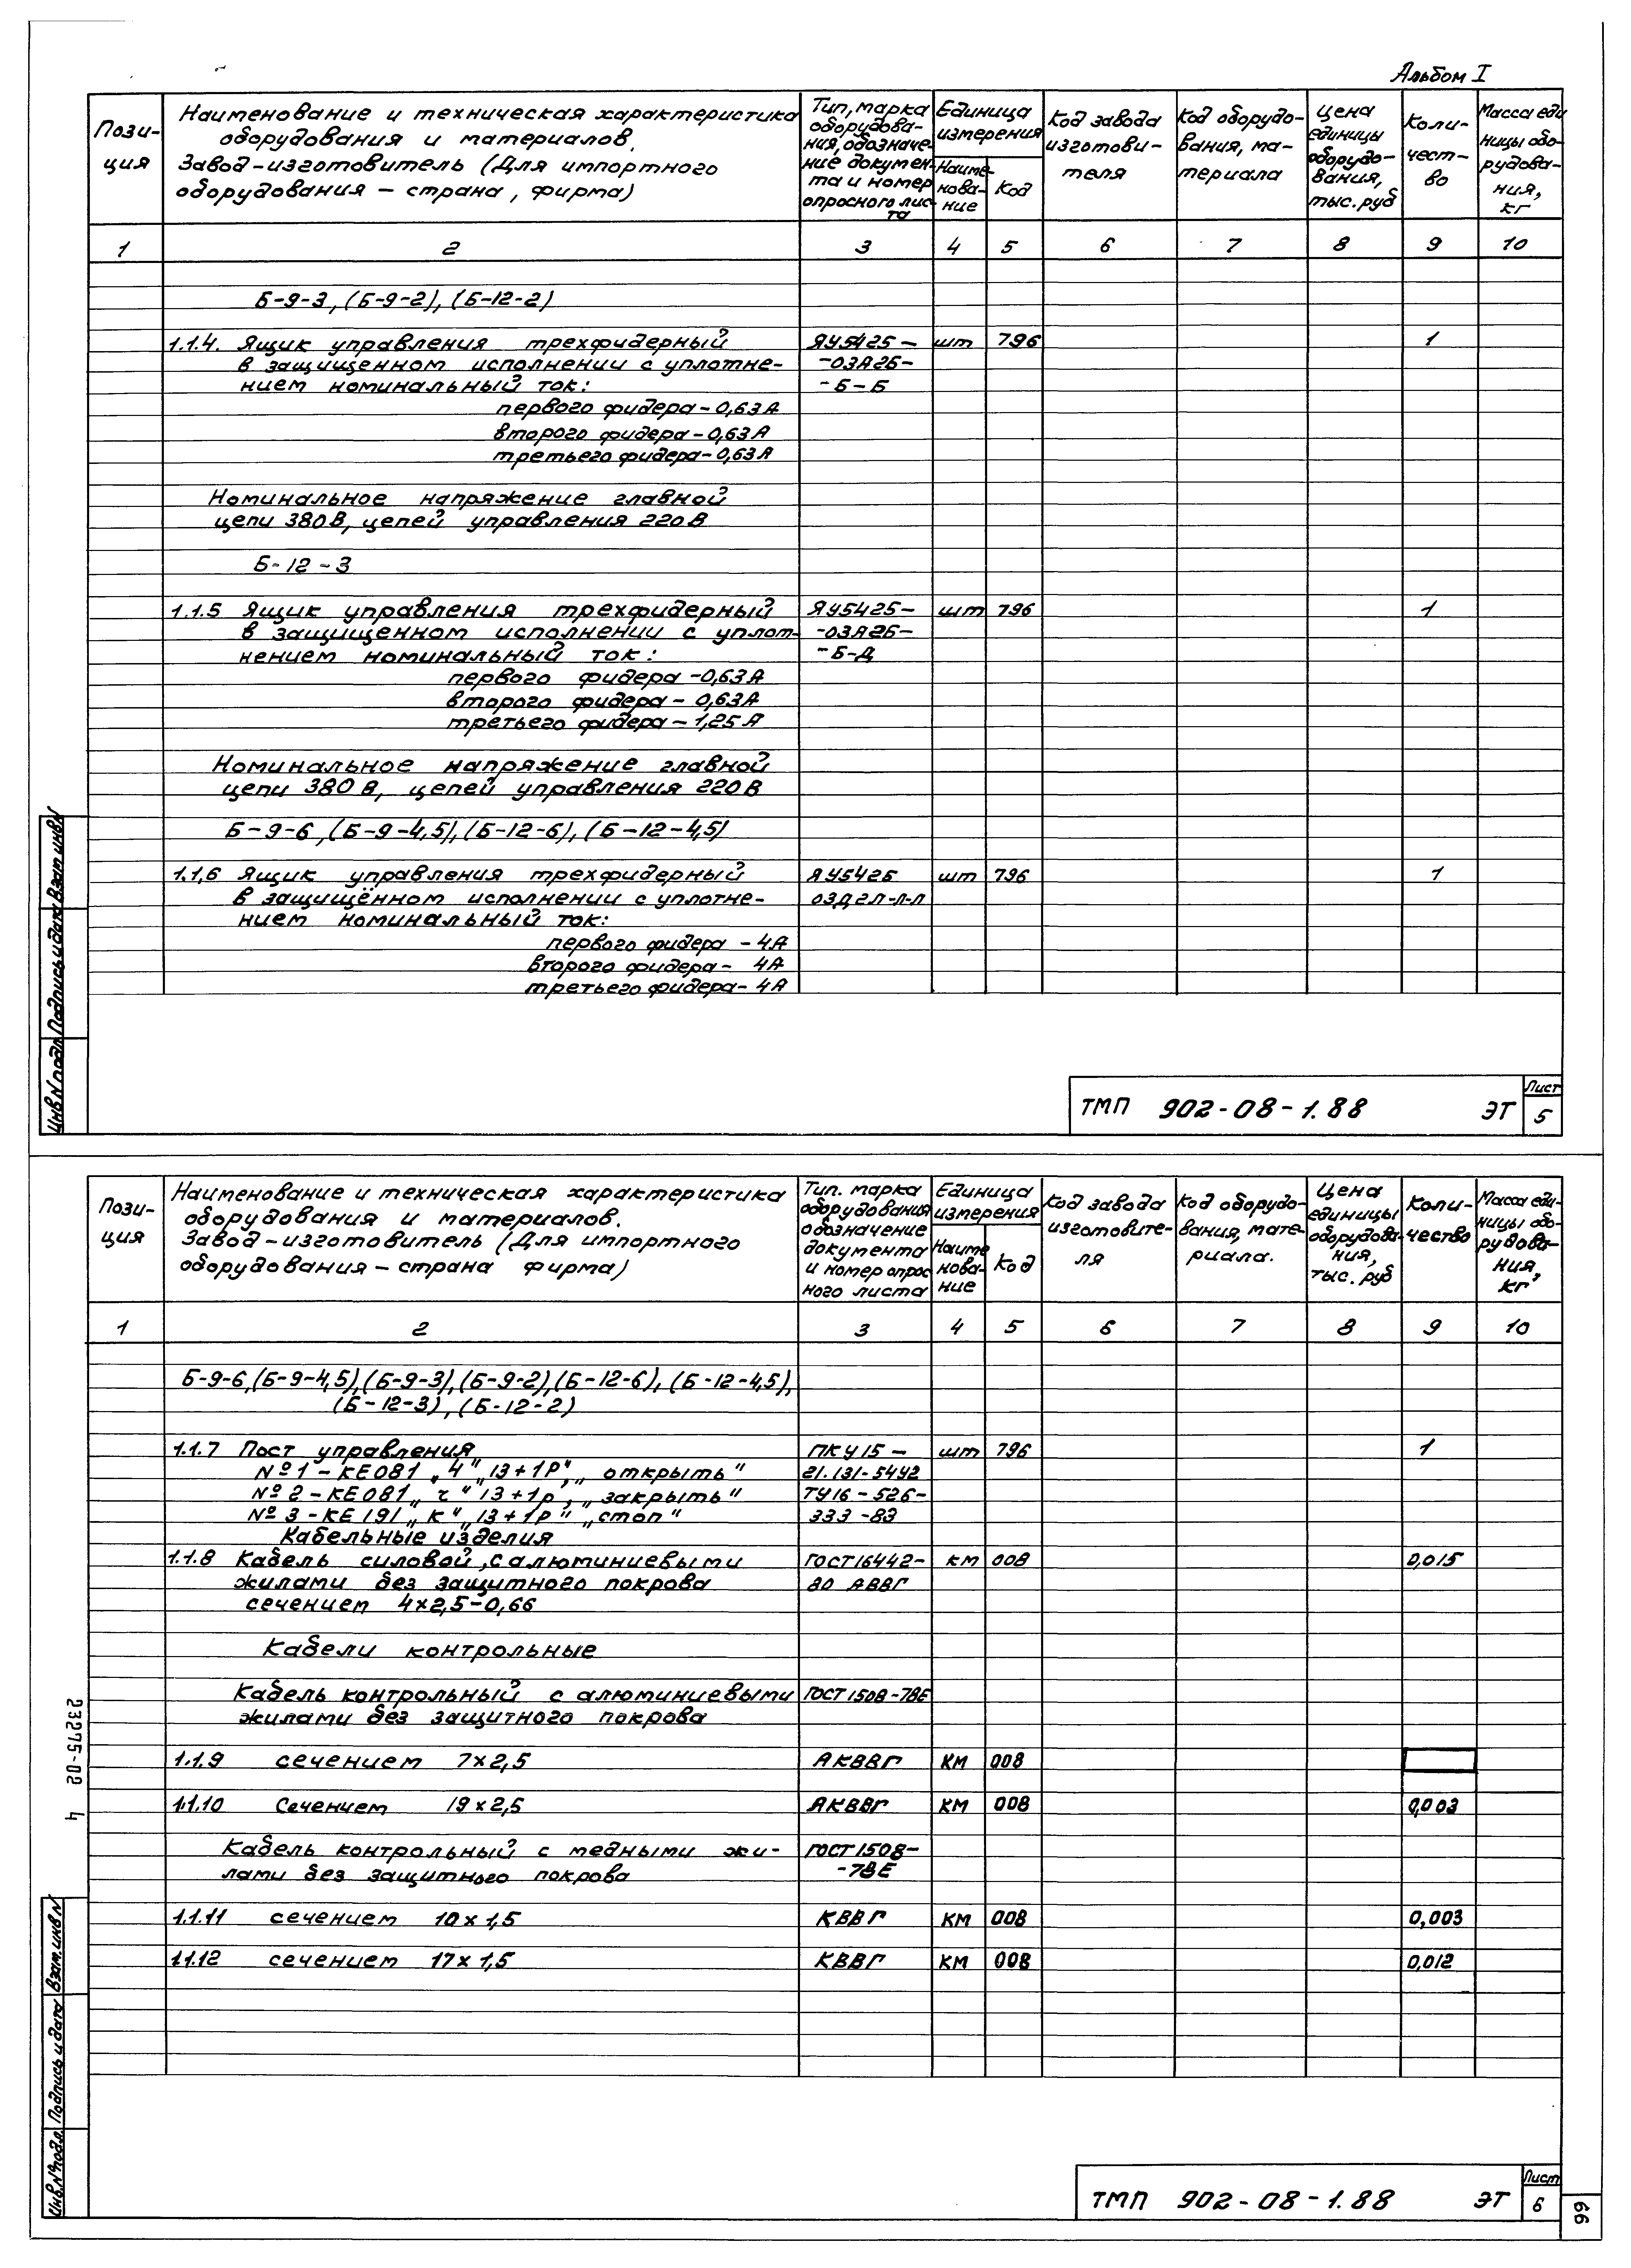 Альбом I
Пози-
ция
Наименование и техническая характеристика
оборудования и материалов.
Завод-изготовитель (Для импортного
оборудования – страна, фирма)
Тип, марка
оборудова-
ния, обозначе-
ние докумен-
та и номер
опросного лис-
та
Единица
измерения
Наиме-
нова-
ние
Код
Код завода
изготови-
теля
Код оборудо-
вания, ма-
териала
Цена
единицы
оборудо-
вания,
тыс. руб
Коли-
чест-
во
Масса еди
ницы обо-
рудова-
ния,
кг
1 2 3 4 5 6 7 8 9 10
Б-9-3, (Б-9-2), (Б-12-2)
1.1.4. Ящик управления трехфидерный ЯУ5425– шт 796 1
в защищенном исполнении с уплотне- -03А2Б-
нием номинальный ток: -Б-Б
первого фидера – 0,63А
второго фидера – 0,63А
третьего фидера – 0,63А
Номинальное напряжение главной
цепи 380В, цепей управления 220В
Б-12-3
1.1.5 Ящик управления трехфидерный ЯУ5425– шт 796 1
в защищенном исполнении с уплот- -03А2Б-
нением номинальный ток: -Б-Д
первого фидера – 0,63А
второго фидера – 0,63А
третьего фидера – 1,25А
Номинальное напряжение главной
цепи 380В, цепей управления 220В
Б-9-6, (Б-9-4,5), (Б-12-6), (Б-12-4,5)
1.1,6 Ящик управления трехфидерный ЯУ5425 шт 796 1
в защищённом исполнении с уплотне- 03Д2Л-Л-Л
нием номинальный ток:
первого фидера – 4А
второго фидера – 4А
третьего фидера – 4А
Инв.N подл. Подпись и дата Взам инв.N
ТМП 902-08-1.88 ЭТ
Лист
5
Пози-
ция
Наименование и техническая характеристика
оборудования и материалов.
Завод-изготовитель (Для импортного
оборудования – страна фирма)
Тип. марка
оборудования
обозначение
документа
и номер опрос
ного листа
Единица
измерения
Наиме
нова-
ние
Код
Код завода
изготовите-
ля
Код оборудо-
вания, мате-
риала.
Цена
единицы
оборудова-
ния,
тыс. руб
Коли-
чество
Масса еди-
ницы обо-
рудова-
ния,
кг
1 2 3 4 5 6 7 8 9 10
Б-9-6, (Б-9-4,5), (Б-9-3), (Б-9-2), (Б-12-6), (Б-12-4,5),
(Б-12-3), (Б-12-2)
1.1.7 Пост управления ПКУ15– шт 796 1
№1 – КЕ081 „Ч“ „13+1Р“, „открыть“ 21.131-54У2
№2 – КЕ081 „ч“ 13+1р, „закрыть“ ТУ16-526-
№3 – КЕ191 „К“ „13+1Р“ „стоп“ 333-83
Кабельные изделия
1.1.8 Кабель силовой, с алюминиевыми ГОСТ16442- км 008 0,015
жилами без защитного покрова 80 АВВГ
сечением 4×2,5-0,66
Кабели контрольные
Кабель контрольный с алюминиевыми ГОСТ1508-78Е
жилами без защитного покрова
1.1.9 сечением 7×2,5 АКВВГ КМ 008
1.1.10 Сечением 19×2,5 АКВВГ КМ 008 0,003
Кабель контрольный с медными жи- ГОСТ1508-
лами без защитного покрова -78Е
1.1.11 сечением 10×1,5 КВВГ КМ 008 0,003
1.1.12 сечением 17×1,5 КВВГ КМ 008 0,012
23275-02 4
Инв.№подл. Подпись и дата Взам.инв.N
ТМП 902-08-1.88 ЭТ
Лист
6
66